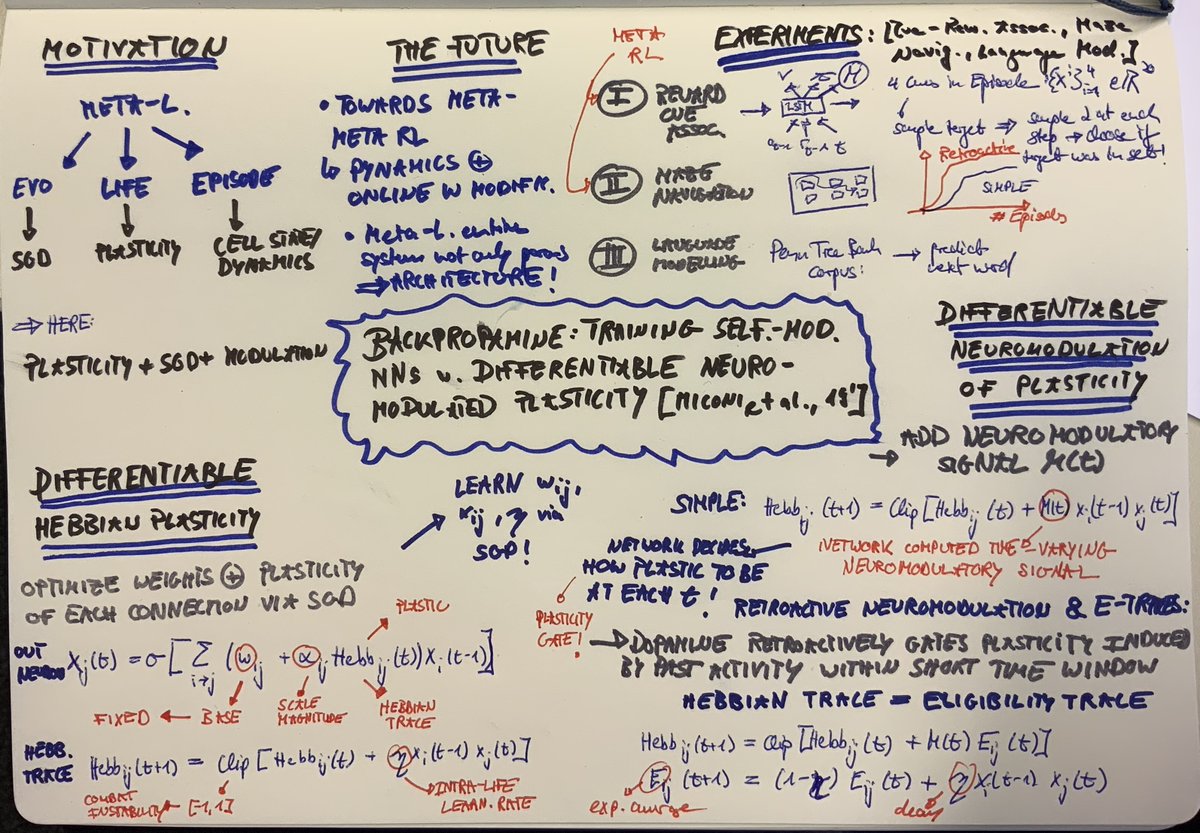 MOTIVATION
META-L.
EVO LIFE EPISODE
SGD PLASTICITY CELL STATE/
DYNAMICS
⇒ HERE:
PLASTICITY + SGD + MODULATION
THE FUTURE
• TOWARDS META-
META RL
↳ DYNAMICS ⊕
ONLINE W MODIFK.
• Meta-L. entire
system not only params
⇒ ARCHITECTURE!
META
RL
EXPERIMENTS: [Cue-Rew. Assoc., Maze
Navig., Language Mod.]
I REWARD
CUE
ASSOC.
LSTM
M
4 cues in Episode {x^i}^4_{i=1} ∈ R^20
sample target ⇒ sample 2 at each
step → choose if
target was in set!
Retroactive
SIMPLE
# Episods
II MAZE
NAVIGATION
III LANGUAGE
MODELLING
Penn Tree Bank
corpus:
→ predict
next word
BACKPROPAMINE: TRAINING SELF-MOD.
NNs w. DIFFERENTIABLE NEURO-
MODULATED PLASTICITY [MICONI et al., 19']
DIFFERENTIABLE
HEBBIAN PLASTICITY
OPTIMIZE WEIGHTS ⊕ PLASTICITY
OF EACH CONNECTION VIA SGD
LEARN w_ij,
α_ij, η via
SGD!
PLASTIC
OUT
NEURON x_j(t) = σ[Σ_{i→j} (w_ij + α_ij Hebb_ij(t)) x_i(t-1)]
FIXED ← BASE
SCALE
MAGNITUDE
HEBBIAN
TRACE
HEBB.
TRACE Hebb_ij(t+1) = Clip[Hebb_ij(t) + η x_i(t-1) x_j(t)]
COMBAT
INSTABILITY ← [-1,1]
INTRA-LIFE
LEARN. RATE
DIFFERENTIABLE
NEUROMODULATION
OF PLASTICITY
→ ADD NEUROMODULATORY
SIGNAL M(t)
SIMPLE: Hebb_ij(t+1) = Clip[Hebb_ij(t) + M(t) x_i(t-1) x_j(t)]
NETWORK COMPUTED TIME-VARYING
NEUROMODULATORY SIGNAL
NETWORK DECIDES
HOW PLASTIC TO BE
AT EACH t!
PLASTICITY
GATE!
RETROACTIVE NEUROMODULATION & E-TRACES:
→ DOPAMINE RETROACTIVELY GATES PLASTICITY INDUCED
BY PAST ACTIVITY WITHIN SHORT TIME WINDOW
HEBBIAN TRACE = ELIGIBILITY TRACE
Hebb_ij(t+1) = Clip[Hebb_ij(t) + M(t) E_ij(t)]
E_ij(t+1) = (1-η) E_ij(t) + η x_i(t-1) x_j(t)
exp. average
decay